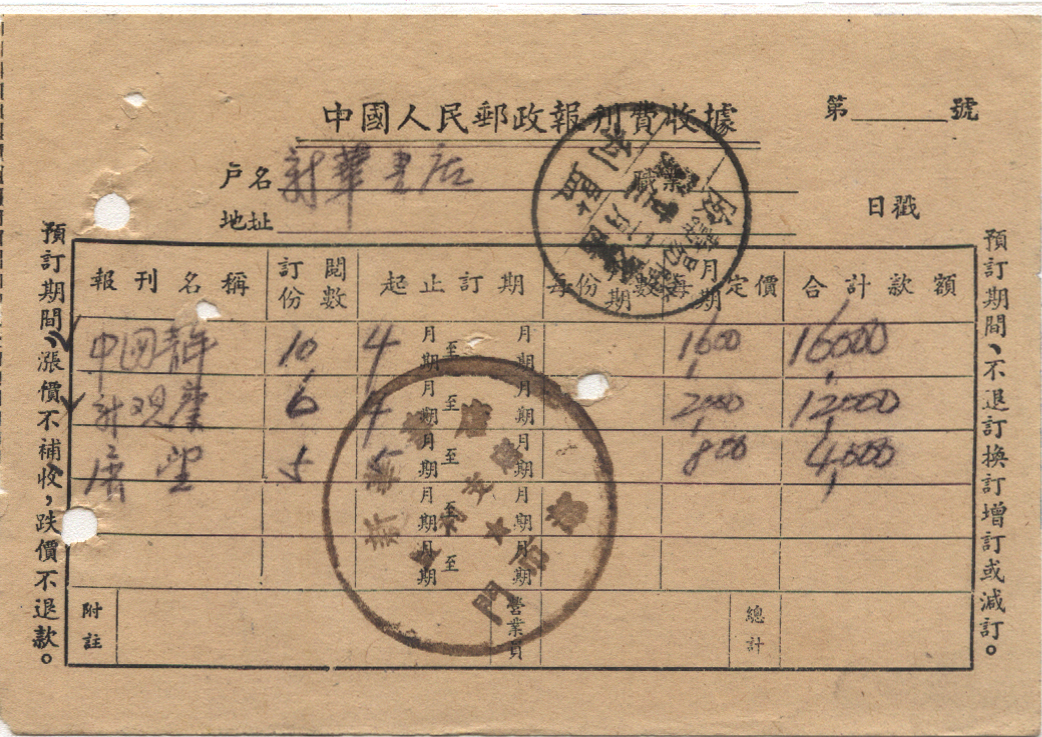 中國人民郵政報刊費收據
第______號
戶名 新華書店
地址
日戳
預訂期間、漲價不補收，跌價不退款。
報刊名稱 訂閱份數 起止訂期 每份 期數 每月期定價 合計款額
中国青年 10 4 月期至 月期 1,600 16,000
新观察 6 4 月期至 月期 2,000 12,000
展望 5 5 月期至 月期 800 4,000
月期至 月期
月期至 月期
附註 營業員 總計
預訂期間、不退訂換訂增訂或減訂。
新華書店
門市部